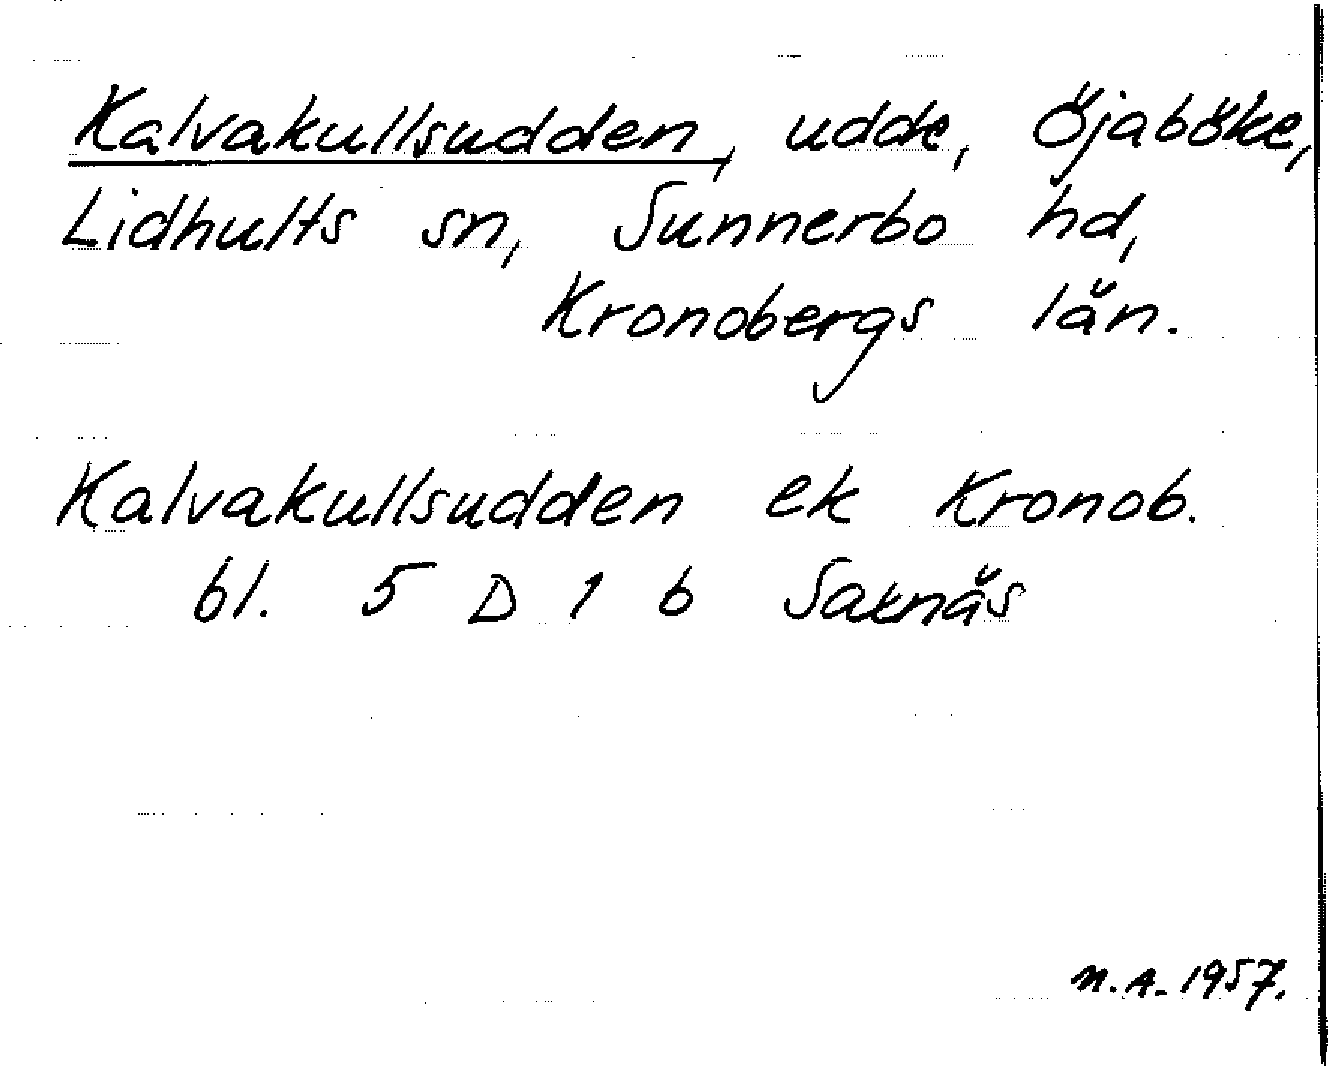 Kalvakullsudden, udde, Öjaböke,
Lidhults sn, Sunnerbo hd,
Kronobergs län.
Kalvakullsudden ek Kronob.
bl. 5 D 1 b Saknäs
N.A. 1957.